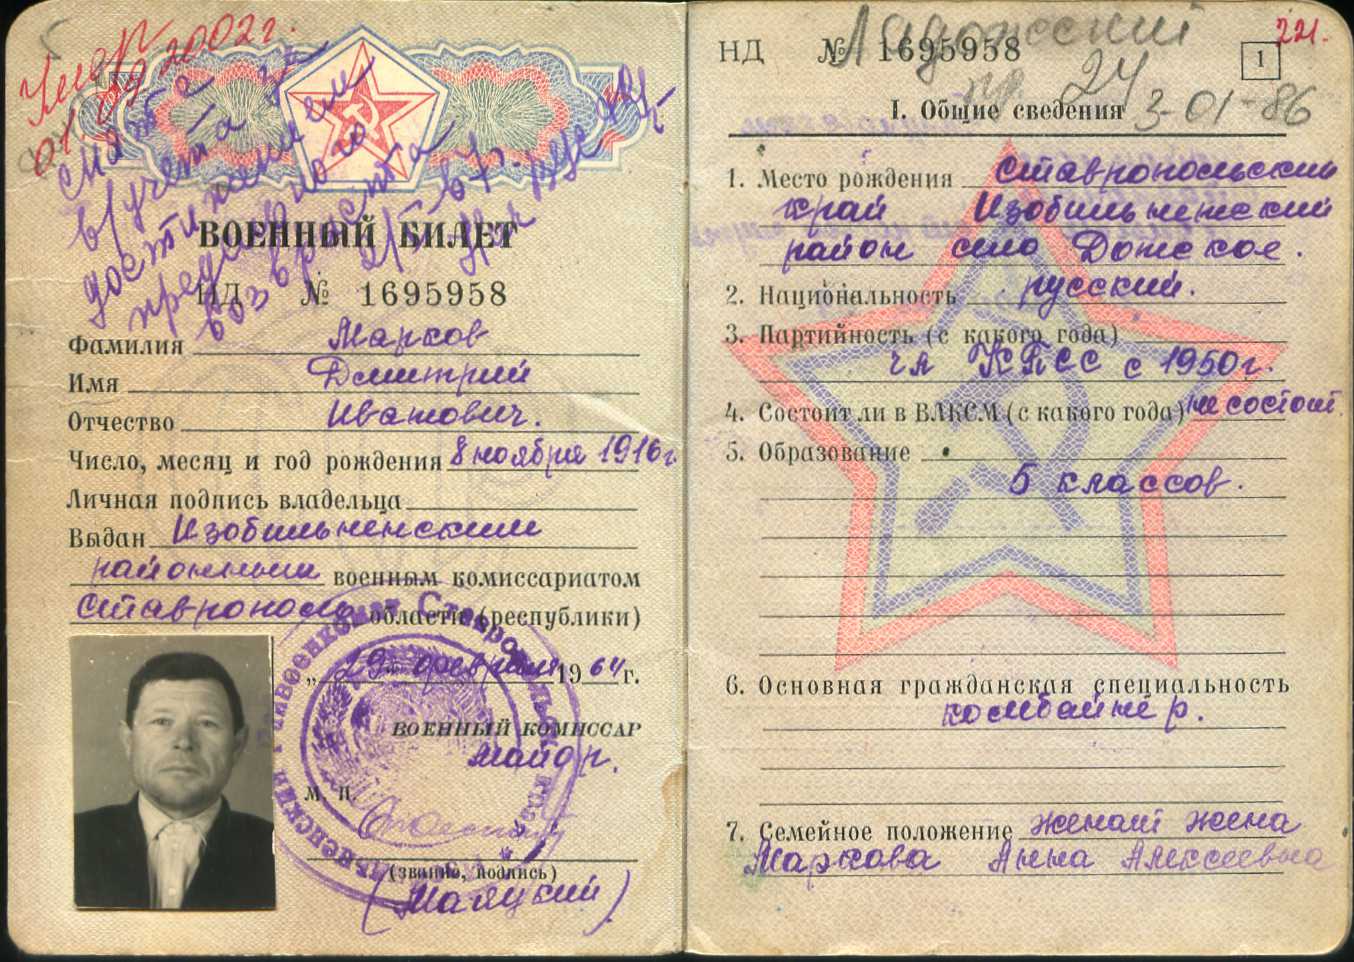 01.09.2002г.
Снят с
в/учета за
достижением
предельного
возраста
ВОЕННЫЙ БИЛЕТ
НД № 1695958
Фамилия Марков
Имя Дмитрий
Отчество Иванович.
Число, месяц и год рождения 8 ноября 1916г.
Личная подпись владельца
Выдан Изобильненским
районным военным комиссариатом
Ставрополь области (республики)
„29" февраля 1964г.
ВОЕННЫЙ КОМИССАР
майор.
М. П.
(звание, подпись)
(Маяцкий)
221.
Ладожский
НД № 1695958
1
24
3-01-86
I. Общие сведения
1. Место рождения Ставропольский
край Изобильненский
район село Донское.
2. Национальность русский.
3. Партийность (с какого года)
чл КПСС с 1950г.
4. Состоит ли в ВЛКСМ (с какого года) не состоит
5. Образование
5 классов.
6. Основная гражданская специальность
комбайнер.
7. Семейное положение женат жена
Маркова Анна Алексеевна